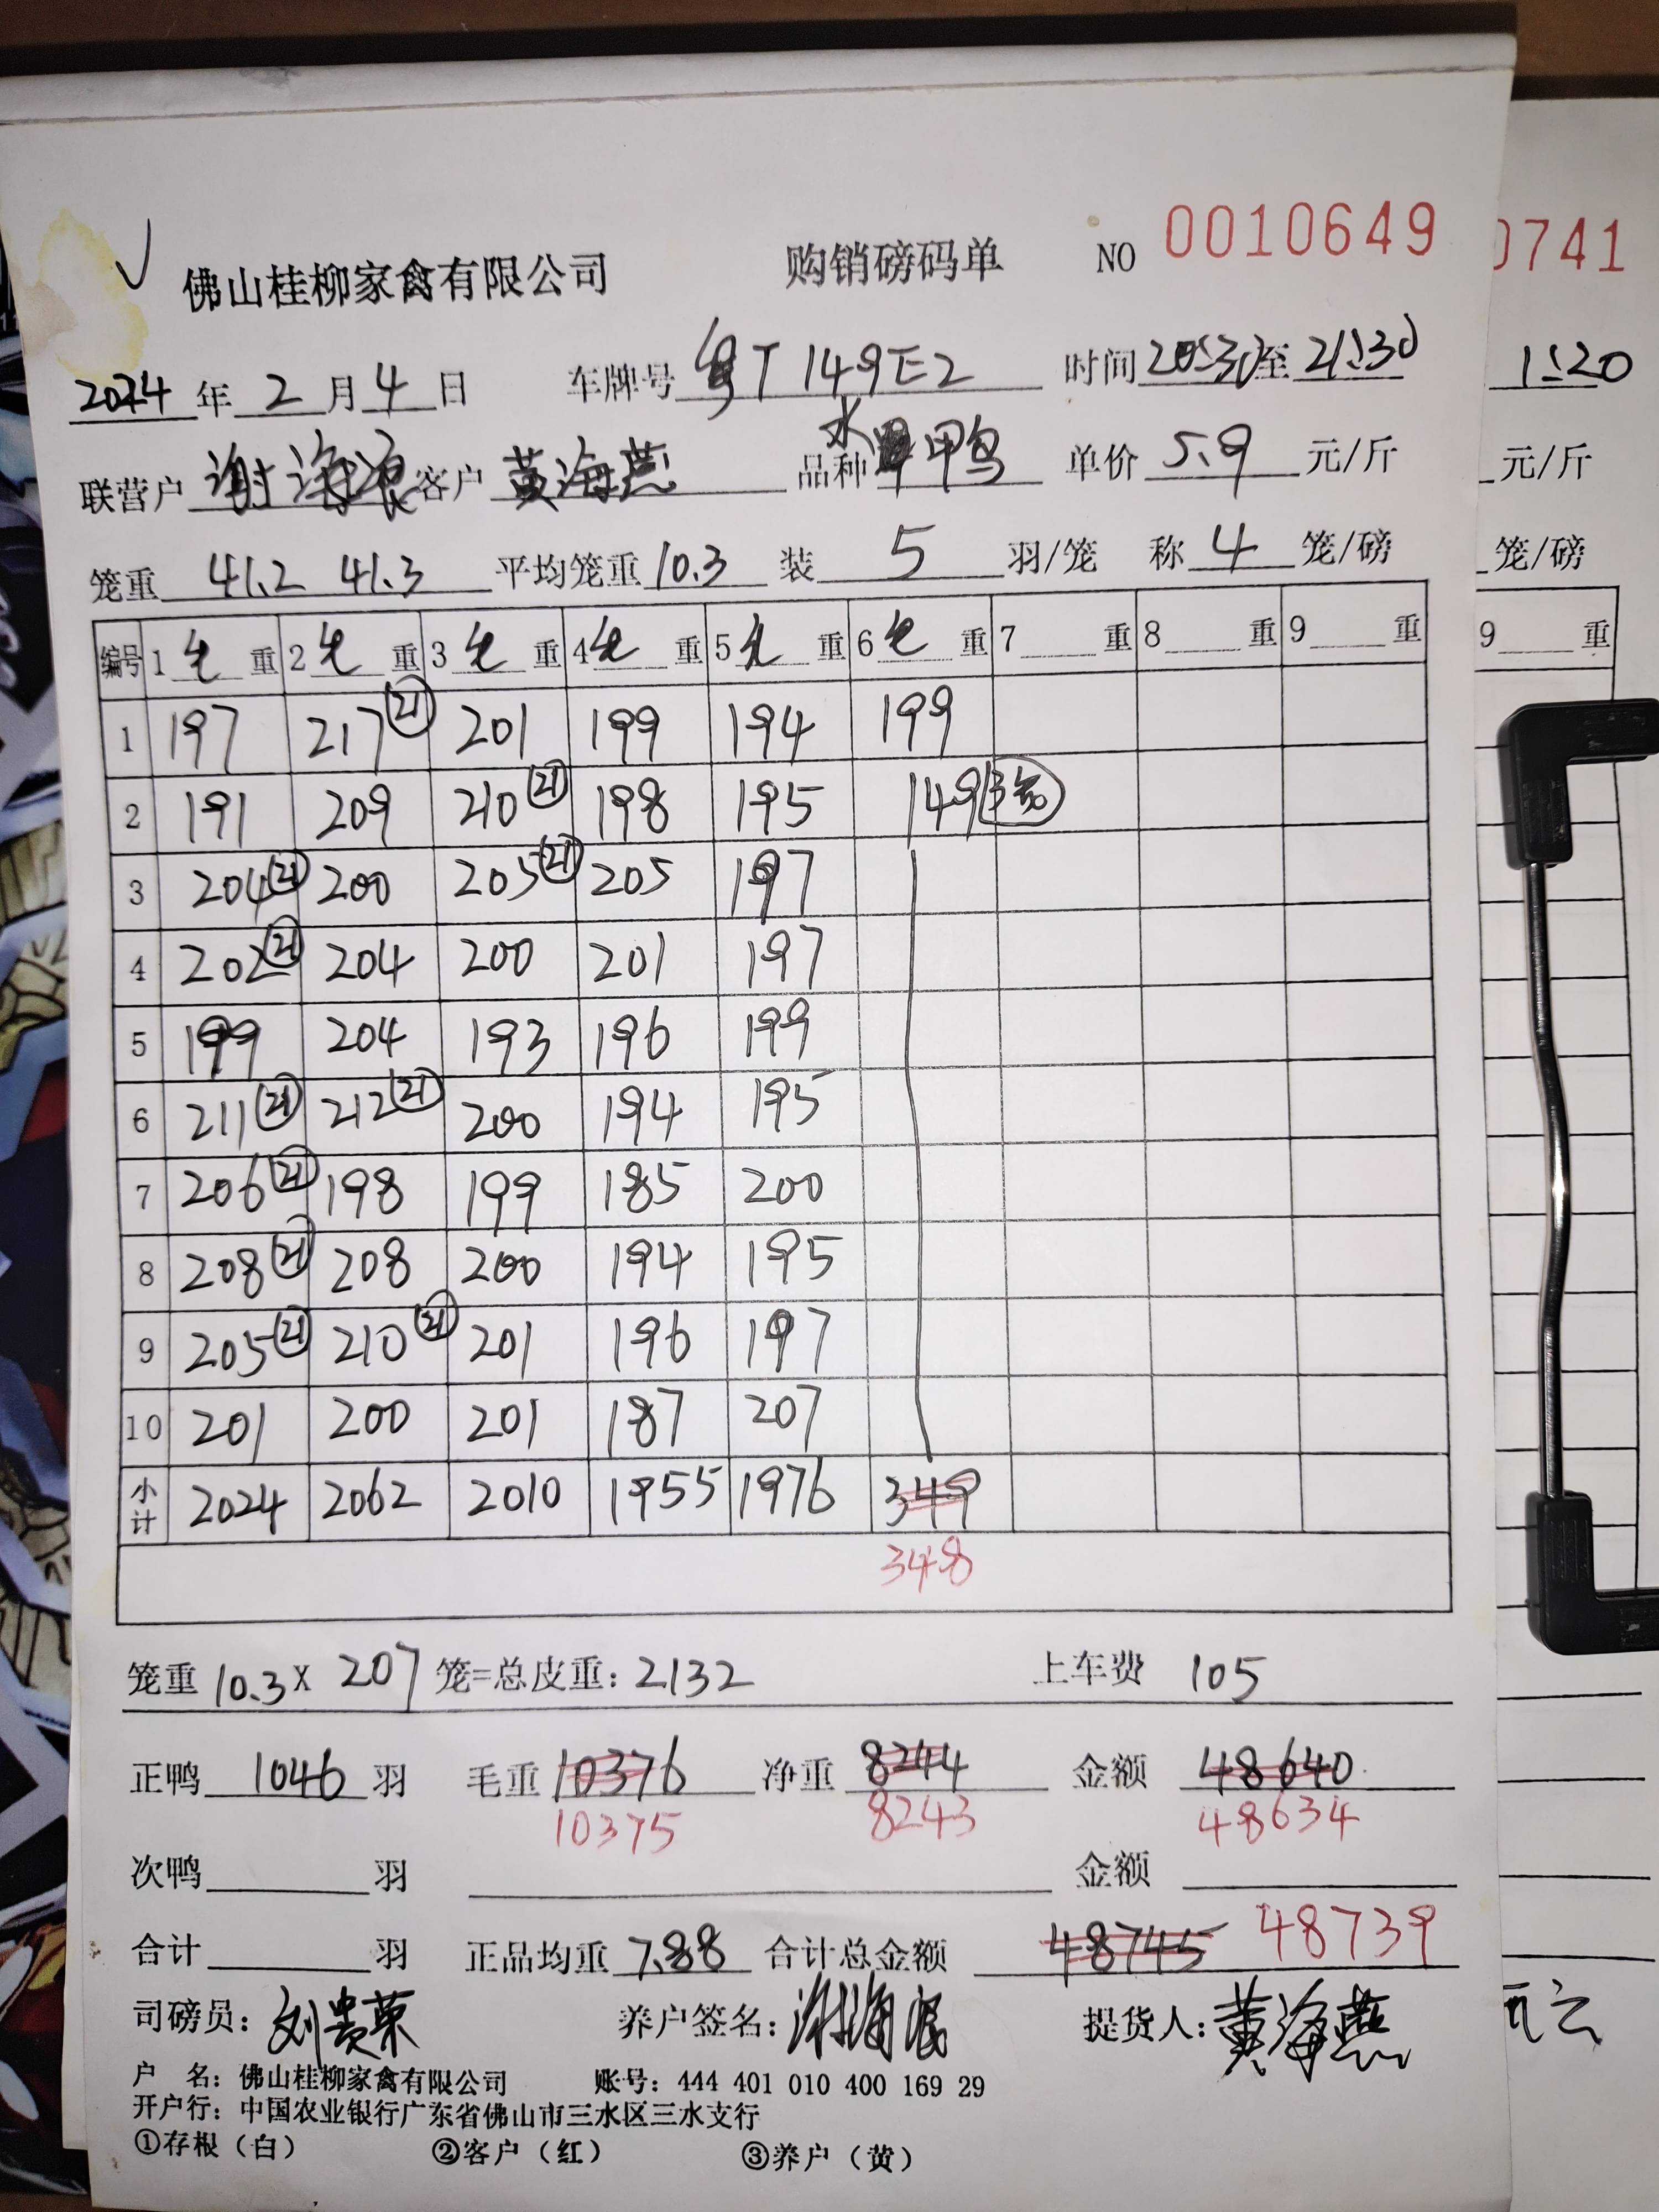 佛山桂柳家禽有限公司 购销磅码单 NO 0010649
2024 年 2 月 4 日 车牌号 粤T149E2 时间 20:30 至 21:30
联营户 谢海浪 客户 黄海燕 品种 水甲鸟 单价 5.9 元/斤
笼重 41.2 41.3 平均笼重 10.3 装 5 羽/笼 称 4 笼/磅
编号 1 毛 重 2 毛 重 3 毛 重 4 毛 重 5 毛 重 6 毛 重 7 重 8 重 9 重
1 197 217 (21) 201 199 194 199
2 191 209 210 (21) 198 195 149 (3笼)
3 204 (21) 200 205 (21) 205 197
4 202 (21) 204 200 201 197
5 199 204 193 196 199
6 211 (21) 212 (21) 200 194 195
7 206 (21) 198 199 185 200
8 208 (21) 208 200 194 195
9 205 (21) 210 (21) 201 196 197
10 201 200 201 187 207
小计 2024 2062 2010 1955 1976 349
348
笼重 10.3 x 207 笼=总皮重: 2132 上车费 105
正鸭 1046 羽 毛重 10376 净重 8244 金额 48640
10375 8243 48634
次鸭 羽 金额
合计 羽 正品均重 7.88 合计总金额 48745 48739
司磅员: 刘贵荣 养户签名: 提货人: 黄海燕
户 名: 佛山桂柳家禽有限公司 账号: 444 401 010 400 169 29
开户行: 中国农业银行广东省佛山市三水区三水支行
①存根（白） ②客户（红） ③养户（黄）
0741
1:20
元/斤
笼/磅
9 重